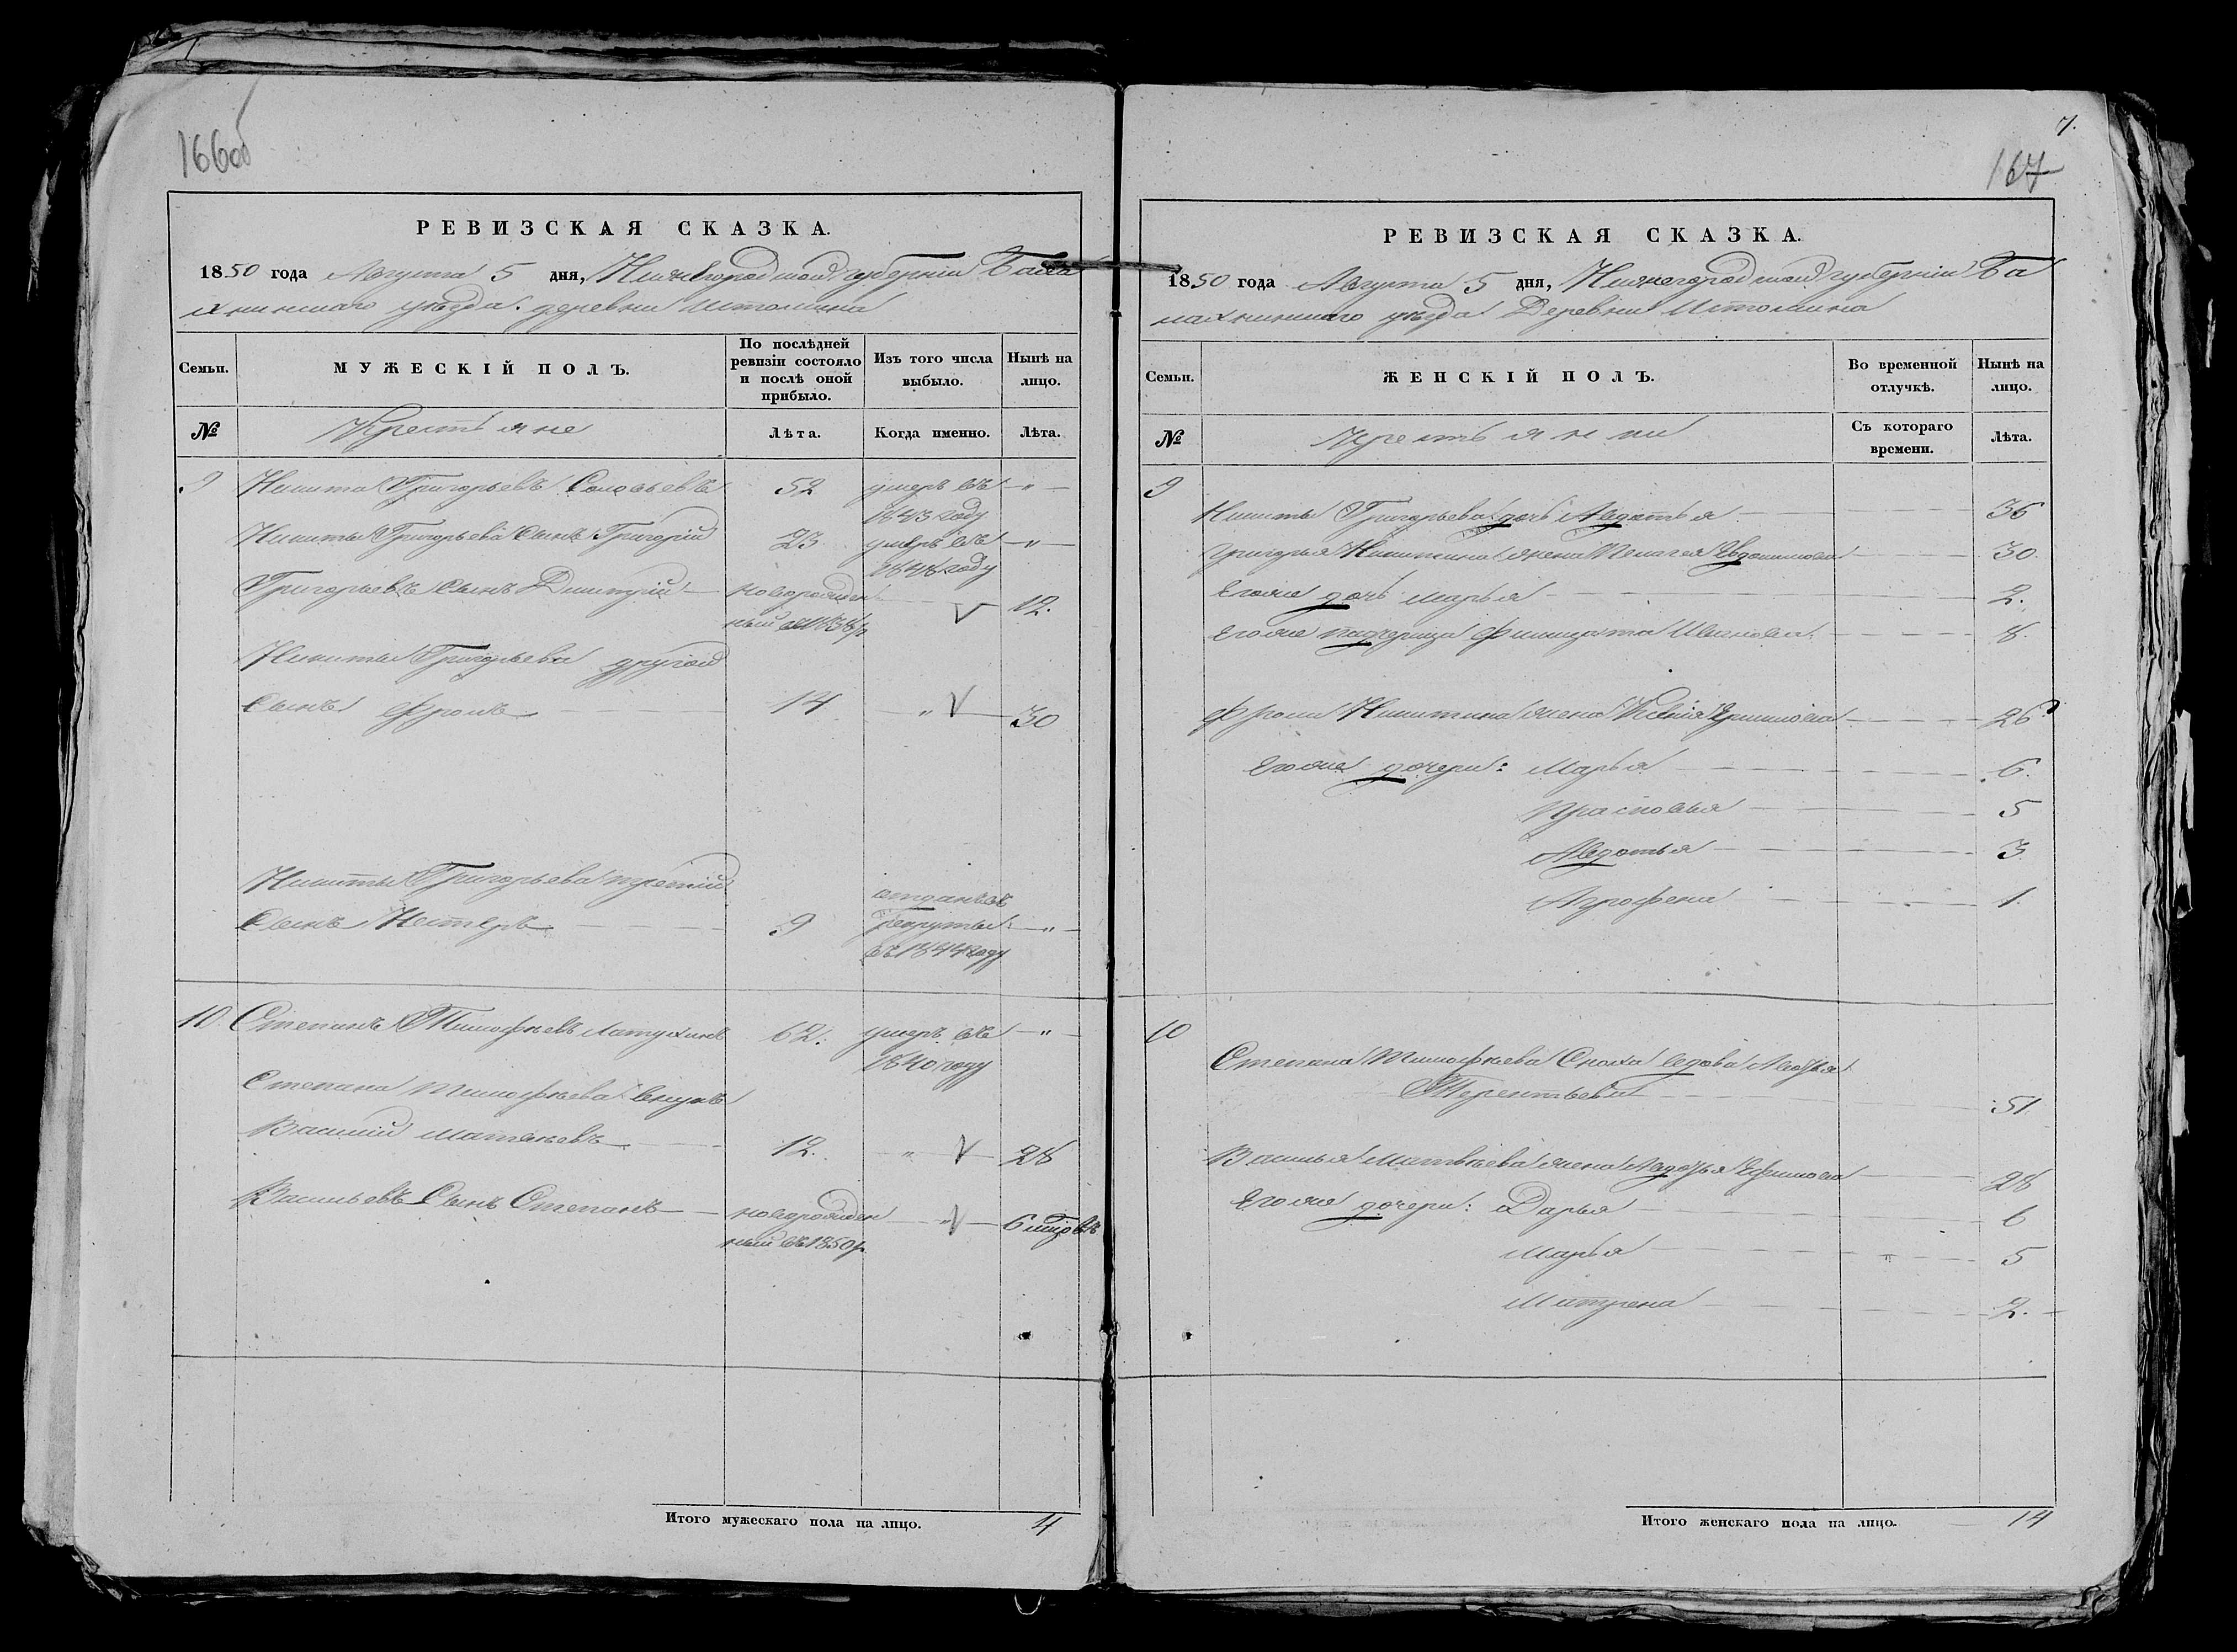 166об
РЕВИЗСКАЯ СКАЗКА.
1850 года Августа 5 дня, Нижегородской губерніи Бала
хнинскаго уѣзда деревни Истомина
Семьи. МУЖЕСКІЙ ПОЛЪ. По послѣдней ревизіи состояло и послѣ оной прибыло. Изъ того числа выбыло. Нынѣ на лицо.
№ Крестьяне Лѣта. Когда именно. Лѣта.
9 Никита Григорьевъ Соловьевъ 52 умеръ въ — " —
1843 году
Никиты Григорьева сынъ Григорій 23 умеръ въ — " —
1848 году
Григорьевъ сынъ Дмитрій — новорожден V 12.
ный въ 1838 г.
Никиты Григорьева другой
сынъ Фролъ 14 " V 30
Никиты Григорьева третій
отданъ въ
сынъ Нестеръ 9 рекруты — " —
въ 1844 году
10 Степанъ Тимофѣевъ Латухинъ 62. умеръ въ — " —
1840 году
Степана Тимофѣева внукъ
Василій Матвѣевъ 12. " V 28
Васильевъ сынъ Степанъ — новорожден " V 6 мѣсцовъ
ный въ 1850 г.
Итого мужескаго пола на лицо. 4
7.
167
РЕВИЗСКАЯ СКАЗКА.
1850 года Августа 5 дня, Нижегородской губерніи Ба
лахнинскаго уѣзда Деревни Истомина
Семьи. ЖЕНСКІЙ ПОЛЪ. Во временной отлучкѣ. Нынѣ на лицо.
№ Крестьянки Съ котораго времени. Лѣта.
9
Никиты Григорьева дочь Авдотья 36
Григорья Никитина жена Пелагея Евдокимова 30.
Егоже дочь Марья 2.
Егоже падчерица Фимицата Иванова 8.
Фрола Никитина жена Ксенія Ермилова 26
Егоже дочери: Марья 6.
Прасковья 5
Авдотья 3
Агрофена 1.
10
Степана Тимофѣева Сноха вдова Авдотья
Терентьева 51
Василья Матвѣева жена Авдотья Ефимова 28
Егоже дочери: Дарья 6
Марья " 5
Матрена 2. —
Итого женскаго пола на лицо. 14